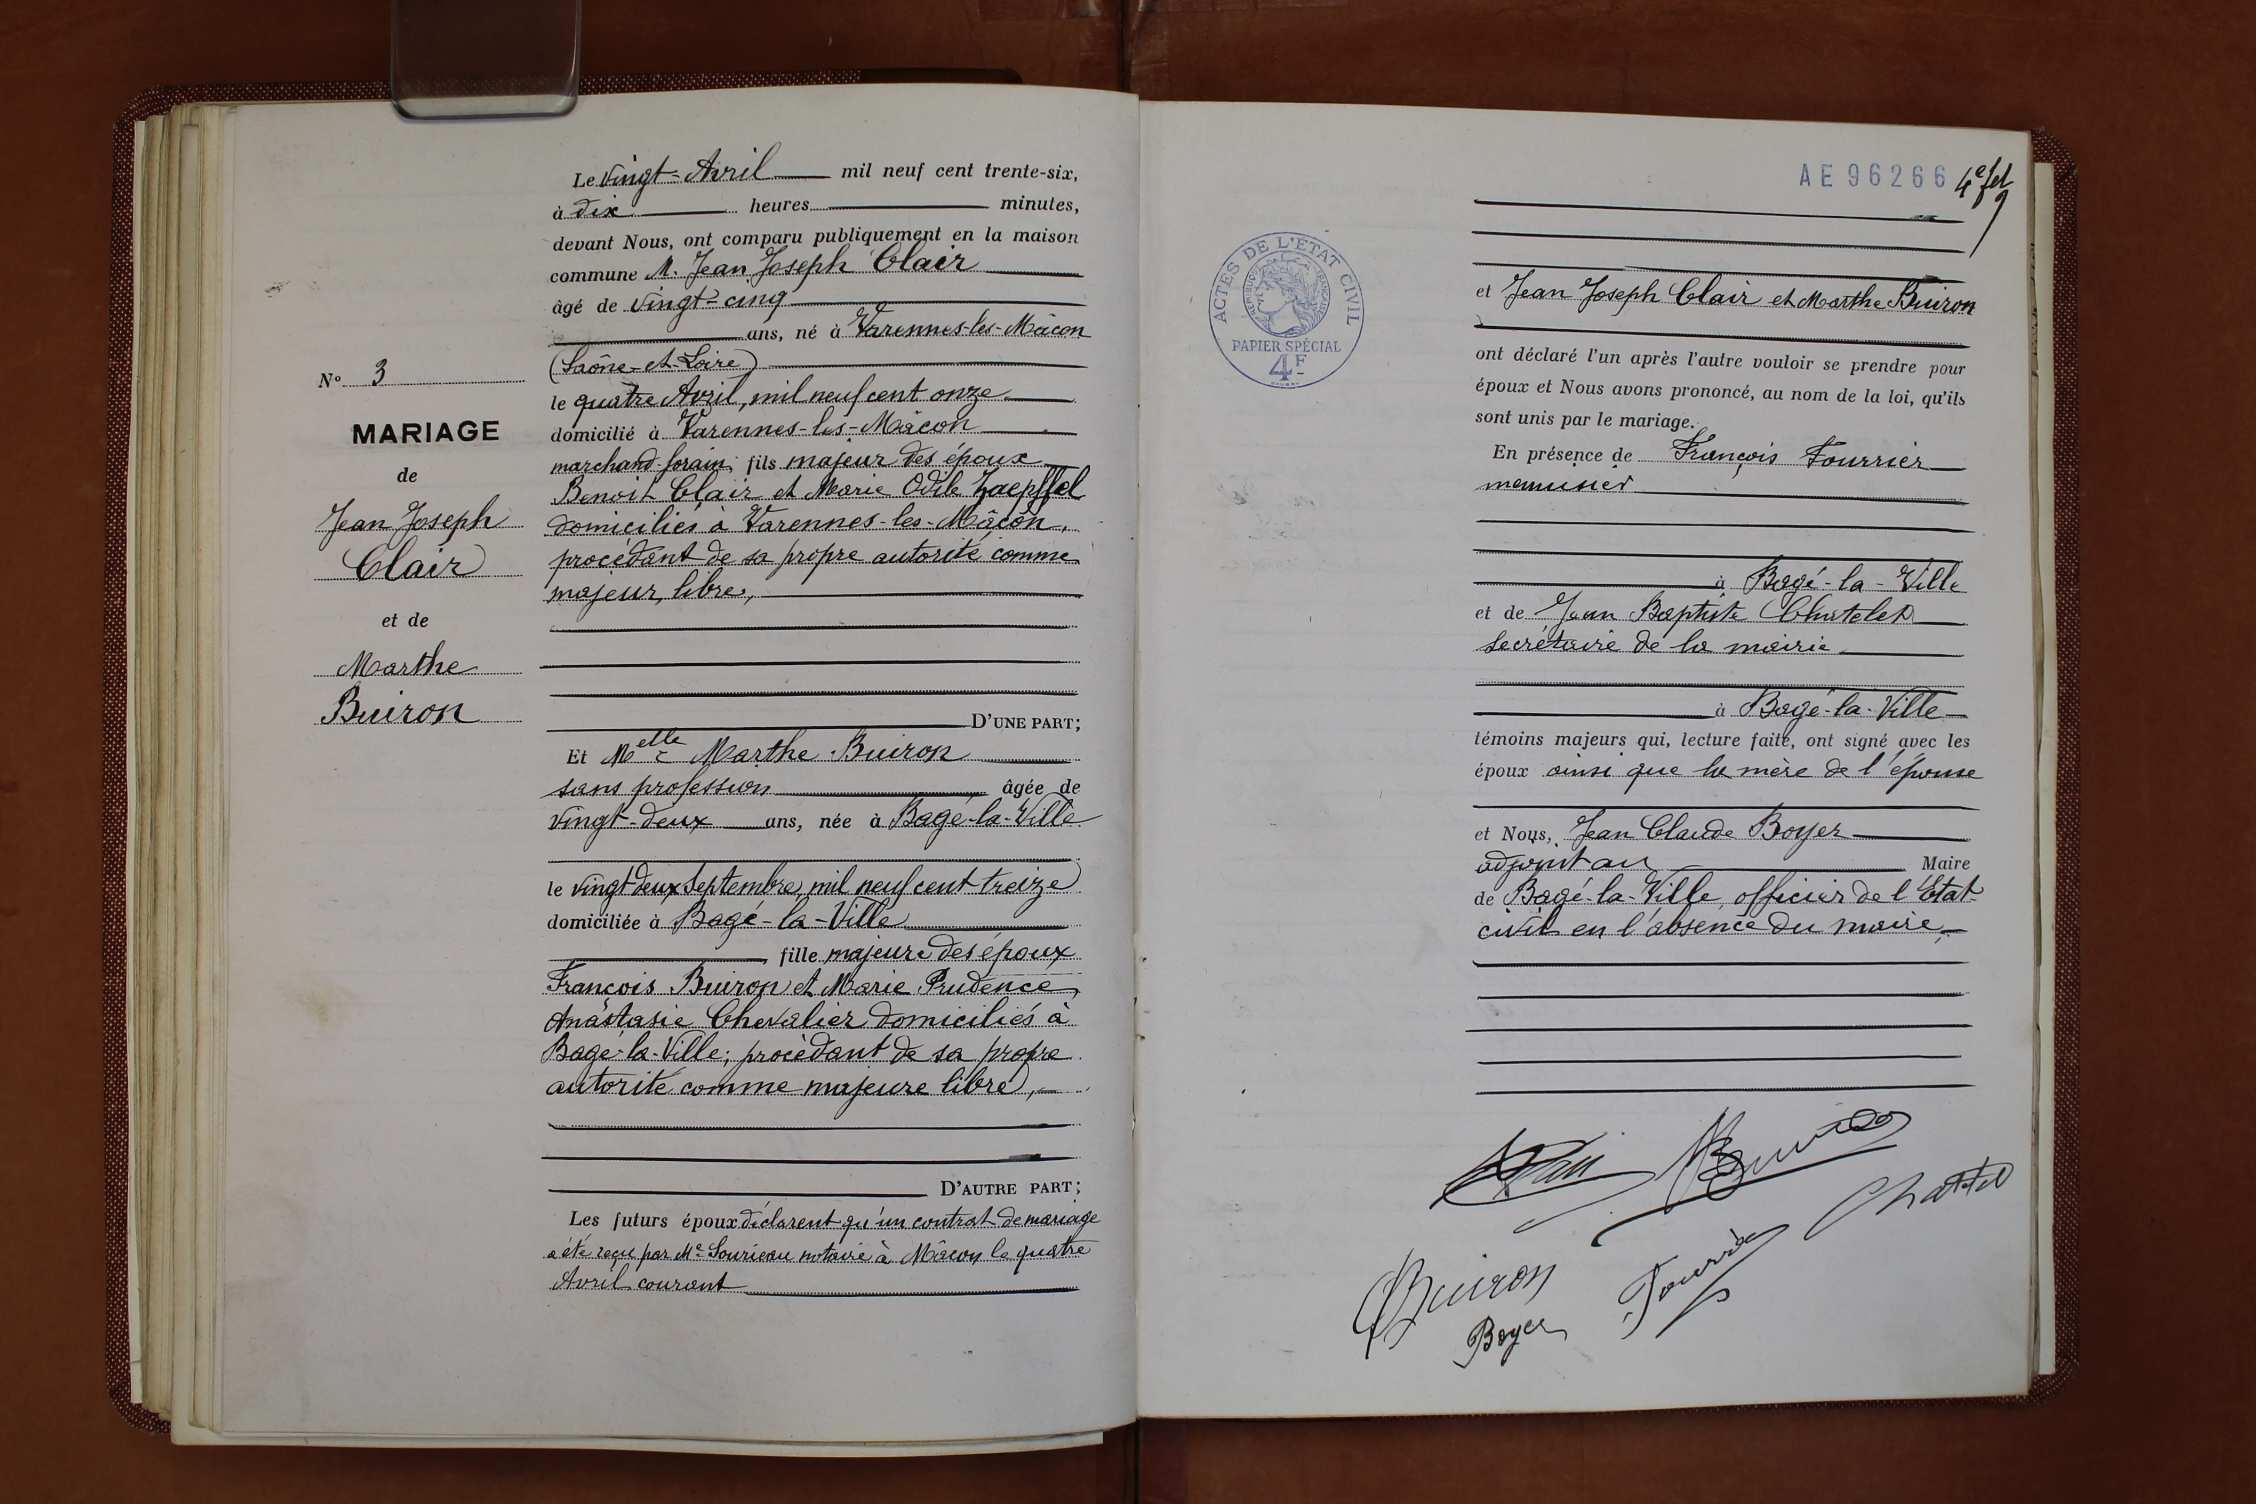 N° 3
MARIAGE
de
Jean Joseph
Clair
et de
Marthe
Buiron
Le vingt-Avril mil neuf cent trente-six,
à dix heures minutes,
devant Nous, ont comparu publiquement en la maison
commune M. Jean Joseph Clair
âgé de vingt-cinq
ans, né à Varennes-les-Mâcon
(Saône-et-Loire)
le quatre Avril, mil neuf cent onze
domicilié à Varennes-les-Mâcon
marchand forain, fils majeur des époux
Benoit Clair et Marie Odile Zaepffel
domiciliés à Varennes-les-Mâcon,
procédant de sa propre autorité comme
majeur, libre,
D'UNE PART;
Et Melle Marthe Buiron
sans profession âgée de
vingt-deux ans, née à Bagé-la-Ville
le vingt deux Septembre, mil neuf cent treize
domiciliée à Bagé-la-Ville
fille majeure des époux
François Buiron et Marie Prudence
Anastasie Chevalier domiciliés à
Bagé-la-Ville; procédant de sa propre
autorité comme majeure libre,
D'AUTRE PART;
Les futurs époux déclarent qu'un contrat de mariage
a été reçu par Me Sourieau notaire à Mâcon le quatre
Avril courant
AE96266 4e fet
ACTES DE L'ETAT CIVIL
REPUBLIQUE FRANÇAISE
PAPIER SPÉCIAL
4F
et Jean Joseph Clair et Marthe Buiron
ont déclaré l'un après l'autre vouloir se prendre pour
époux et Nous avons prononcé, au nom de la loi, qu'ils
sont unis par le mariage.
En présence de François Fourrier
menuisier
à Bagé-la-Ville
et de Jean Baptiste Chatelet
secrétaire de la mairie
à Bagé-la-Ville
témoins majeurs qui, lecture faite, ont signé avec les
époux ainsi que la mère de l'épouse
et Nous, Jean Claude Boyer
adjoint au Maire
de Bagé-la-Ville, officier de l'Etat-
civil en l'absence du maire,
Buiron
Fourrier
Boyer